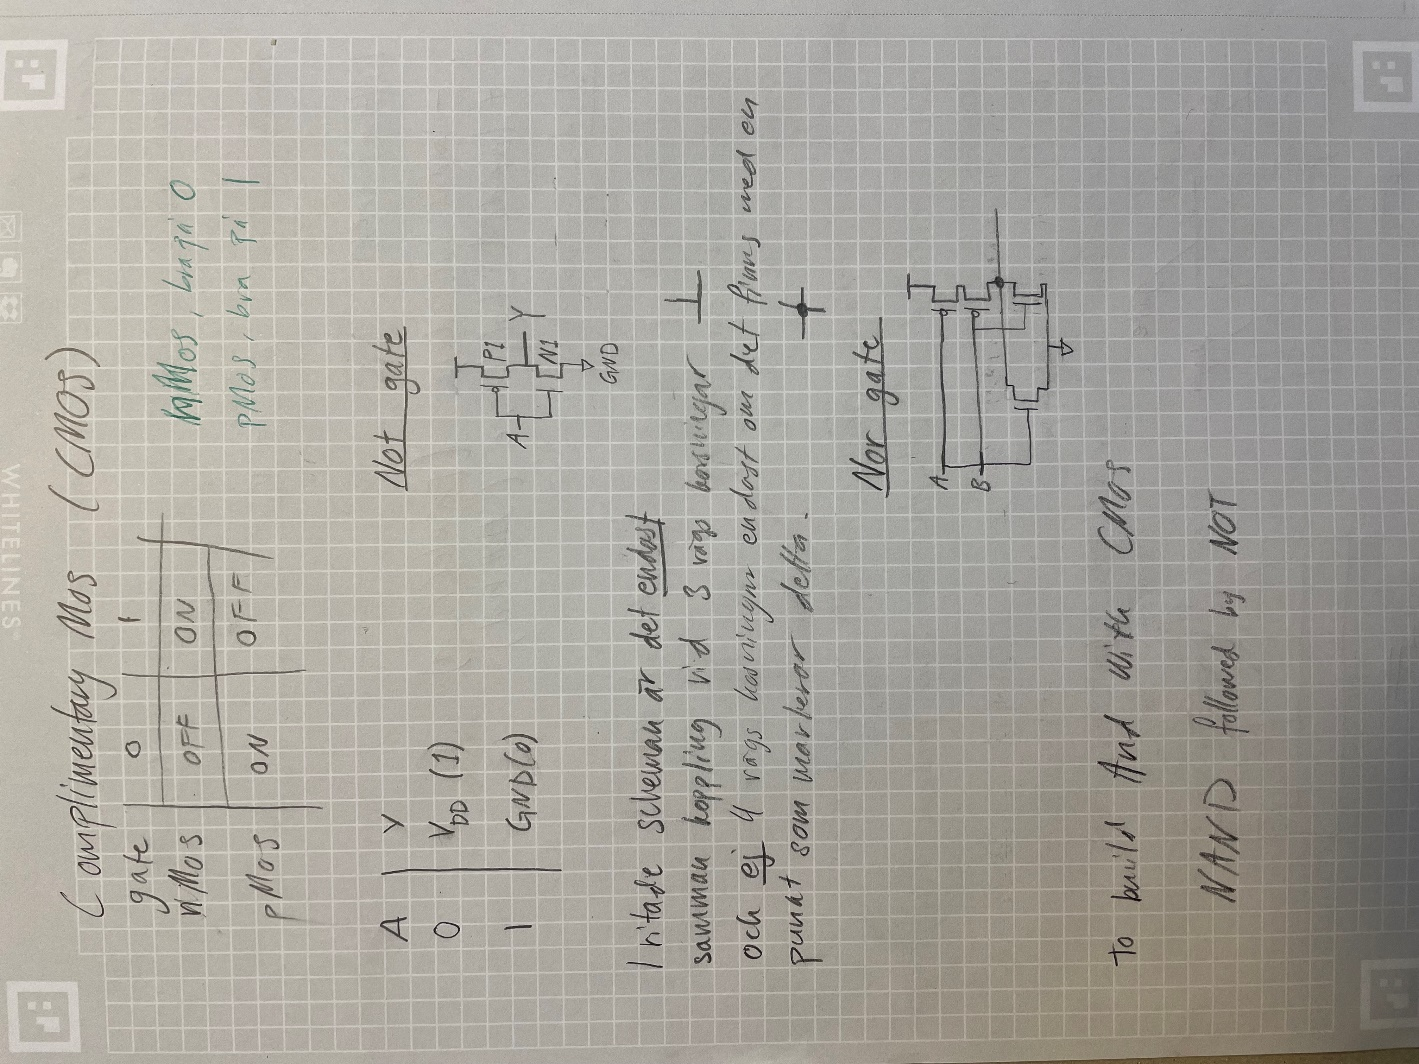 WHITELINES
Complimentary Mos (CMOS)
gate 0 1
nMos OFF ON
pMos ON OFF
nMos, bra på 0
pMos, bra på 1
Not gate
A Y
0 VDD (1)
1 GND(0)
A P1
Y
N1
GND
I ritade scheman är det endast
samman koppling vid 3 vägs korsningar
och ej 4 vägs korsningar endast om det finns med en
punkt som markerar detta.
Nor gate
A
B
to build And with CMos
NAND followed by NOT